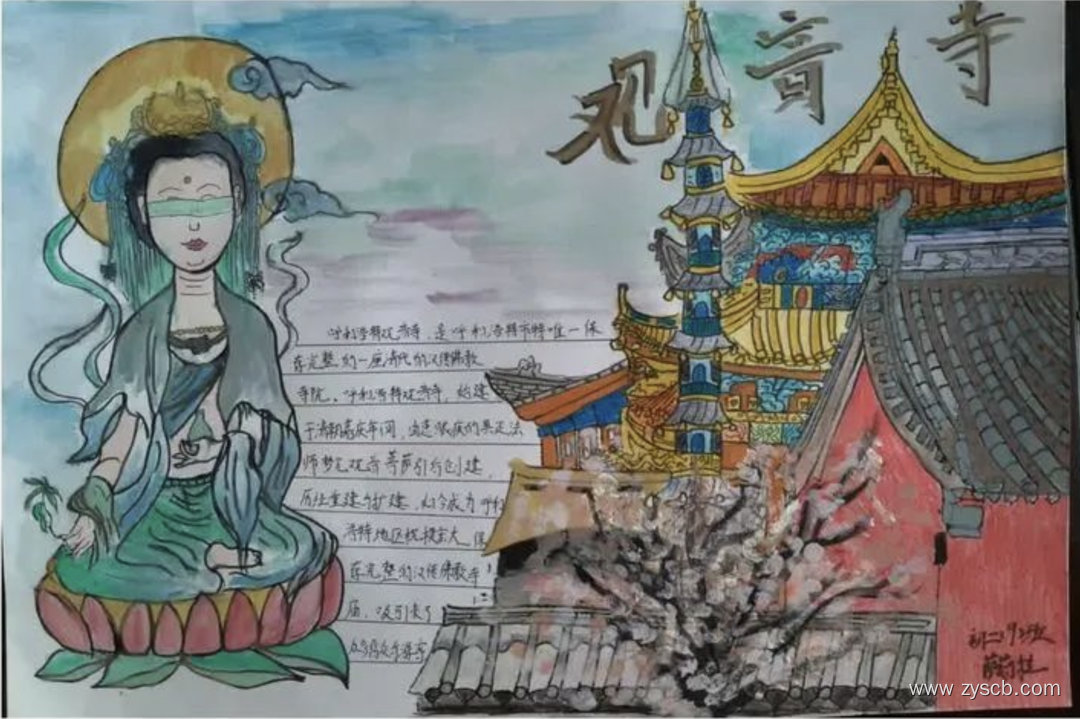 观音寺
呼和浩特观音寺，是呼和浩特市特唯一保
存完整的一座清代的汉传佛教
寺院。呼和浩特观音寺，始建
于清朝嘉庆年间，由
师梦见观音菩萨引后创建，
历经重建与扩建，如今成为呼和
浩特地区规模宏大、保
存完整的汉传佛教寺
庙，吸引来了
初二
www.zyscb.com